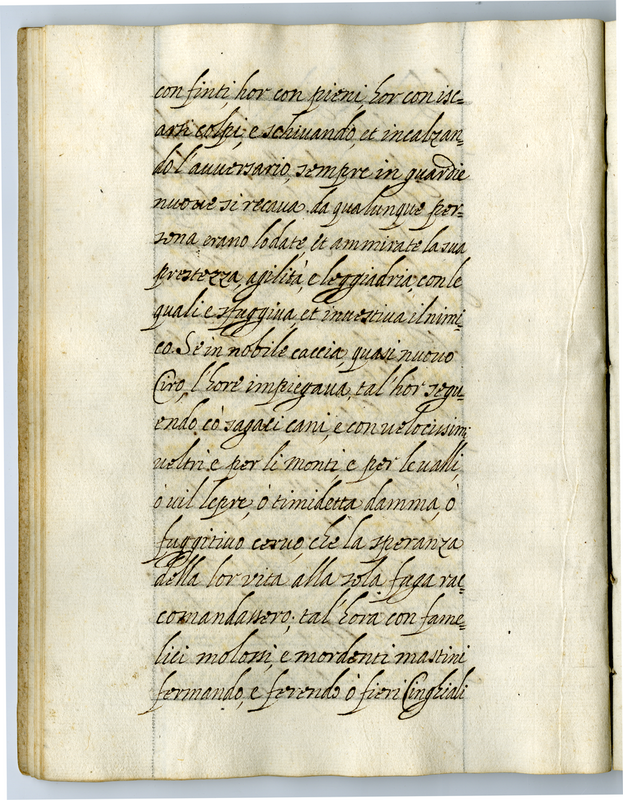 con finti, hor con pieni, hor con isc=
arsi colpi; e schiuando, et incalzan=
do l'auuersario, sempre in guardie
nuoue si recaua. da qualunque per=
sona erano lodate, et ammirate la sua
prestezza, agilità, e leggiadria, con le
quali e sfuggiua, et inuestiua il nimi=
co. Se in nobile caccia, quasi nuouo
Ciro, l'hore impiegaua, tal'hor segu=
endo cò sagaci cani, e con velocissimi
veltri e per li monti e per le valli,
ò vil lepre, ò timidetta damma, ò
fuggitiuo ceruo, che la speranza
della lor vita alla sola fuga rac=
comandassero; tal'hora con fame=
lici molossi, e mordenti mastini
fermando, e ferendo ò fieri Cinghiali